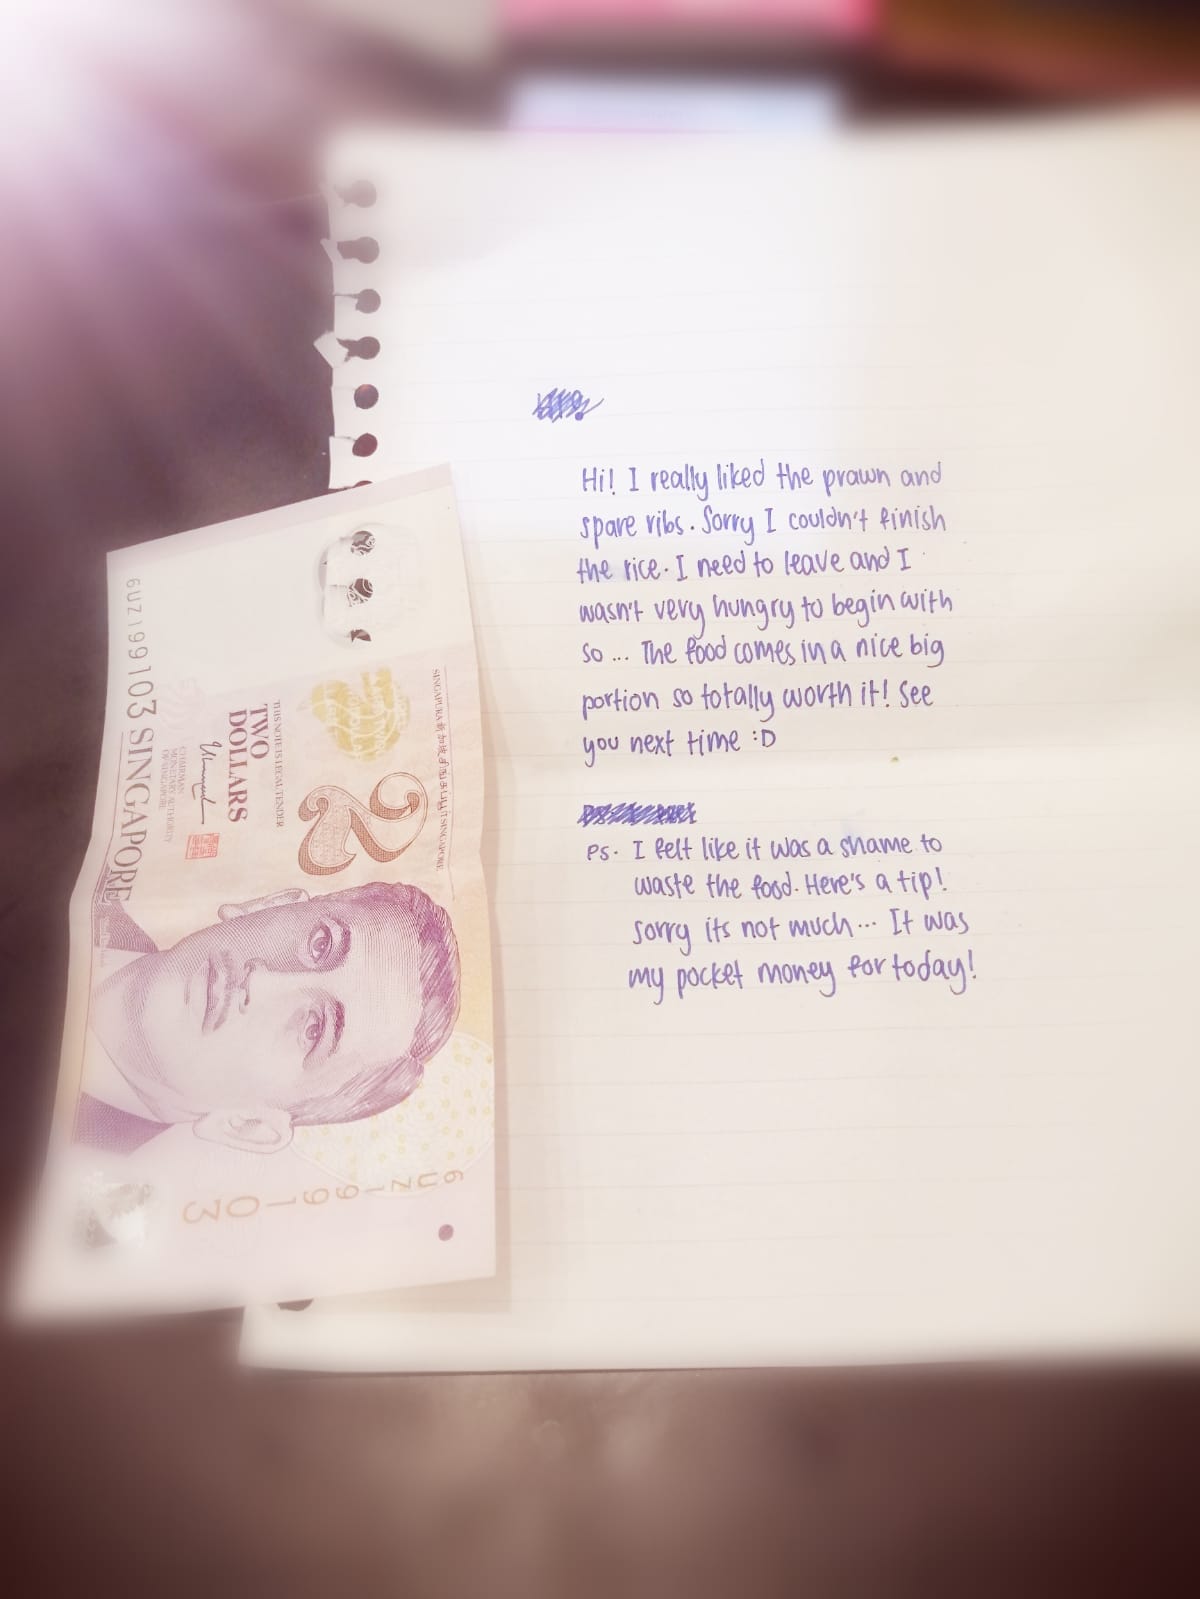 Hi! I really liked the prawn and
spare ribs. Sorry I couldn't finish
the rice. I need to leave and I
wasn't very hungry to begin with
so ... The food comes in a nice big
portion so totally worth it! See
you next time :D
Ps. I felt like it was a shame to
waste the food. Here's a tip!
Sorry its not much... It was
my pocket money for today!
6UZ199103
SINGAPORE
CHAIRMAN
MONETARY AUTHORITY
OF SINGAPORE
TWO
DOLLARS
THIS NOTE IS LEGAL TENDER
2
SINGAPURA 新加坡 சிங்கப்பூர் SINGAPORE
6UZ199103